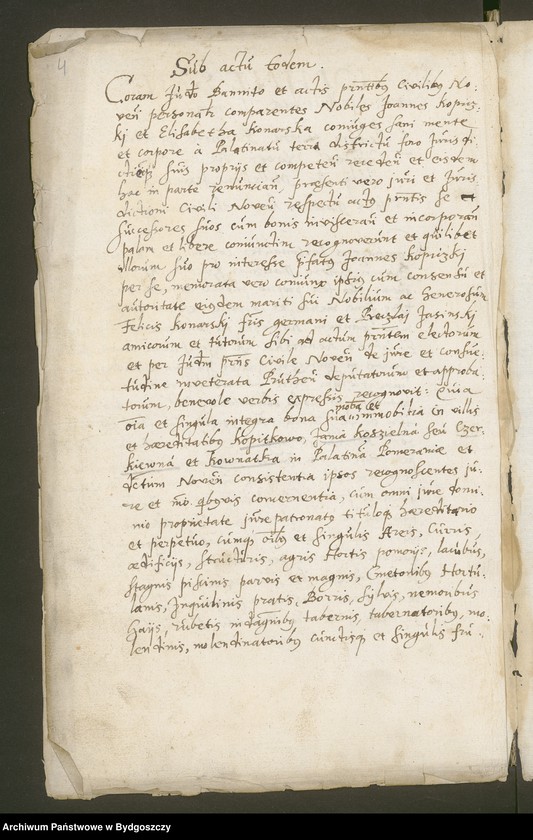 4
Sub actu eodem.
Coram Judo Bannito et actis prntibus Civilibus No-
ven personatr comparentes Nobiles Joannes Kopiz-
ki et Elisabetha Konarska coniuges sani mente
et corpore à Palatinatu terra districtu foro Juris di-
ctioeque suis proprijs et competen receden et eisdem
hac in parte renuncian, praesenti vero juri et Juris
dictioni Civili Noven respectu actus prntis se et
successores suos cum bonis invisceran et incorporan
palam et libere coniunctim recognoverunt et quilibet
illorum suo pro interesse Joannes Kopizki
per se, memorata vero coniunx ipsius cum consensu et
autoritate eiusdem mariti sui Nobilium ac Generosum
Felicis Konarski fris germani et Jasinski
amicorum et tutorum sibi ad actum prntem electorum
et per Judm prns Civile Noven de jure et consue-
tudine inveterata Pruthen deputatorum et approba-
torum, benevole verbis expressis recognovit: Quia
oia et singula integra bona sua mobia et immobilia in villis
et haereditatibus Kopitkowo, Jania Koszielna seu Czer-
kiewna et Kownatka in Palatinu Pomeraniae et
dctum Noven consistentia ipsos recognoscentes ju-
re et mo. qbusvis concernentia, cum omni jure domi-
nio proprietate jurepatronatus tituloque haereditario
et perpetuo, cumque oibus et singulis Areis, Curris,
aedificijs, structuris, agris Hortis pomorijs, lacubus,
stagnis piscinis parvis et magnis, Cmetonibus Hortu-
lanis, Inquilinis pratis, Borris, sylvis, nemoribus
Gajis, rubetis indaginibus tabernis, tabernatoribus, mo-
lendinis, molendinatoribus cunctisque et singulis fru-
Archiwum Państwowe w Bydgoszczy